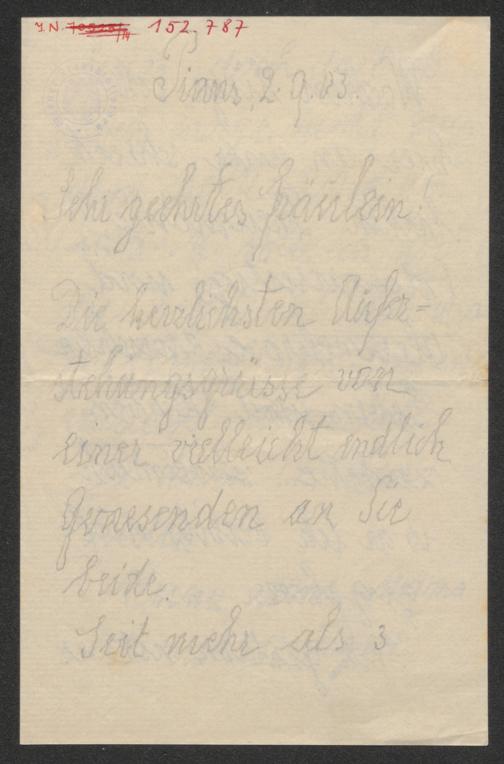 J.N. 152.787
Pians, 2. 9. 03.
Sehr geehrtes Fräulein!
Die herzlichsten Aufer-
stehungsgrüsse von
einer vielleicht endlich
Genesenden an Sie
beide.
Seit mehr als 3